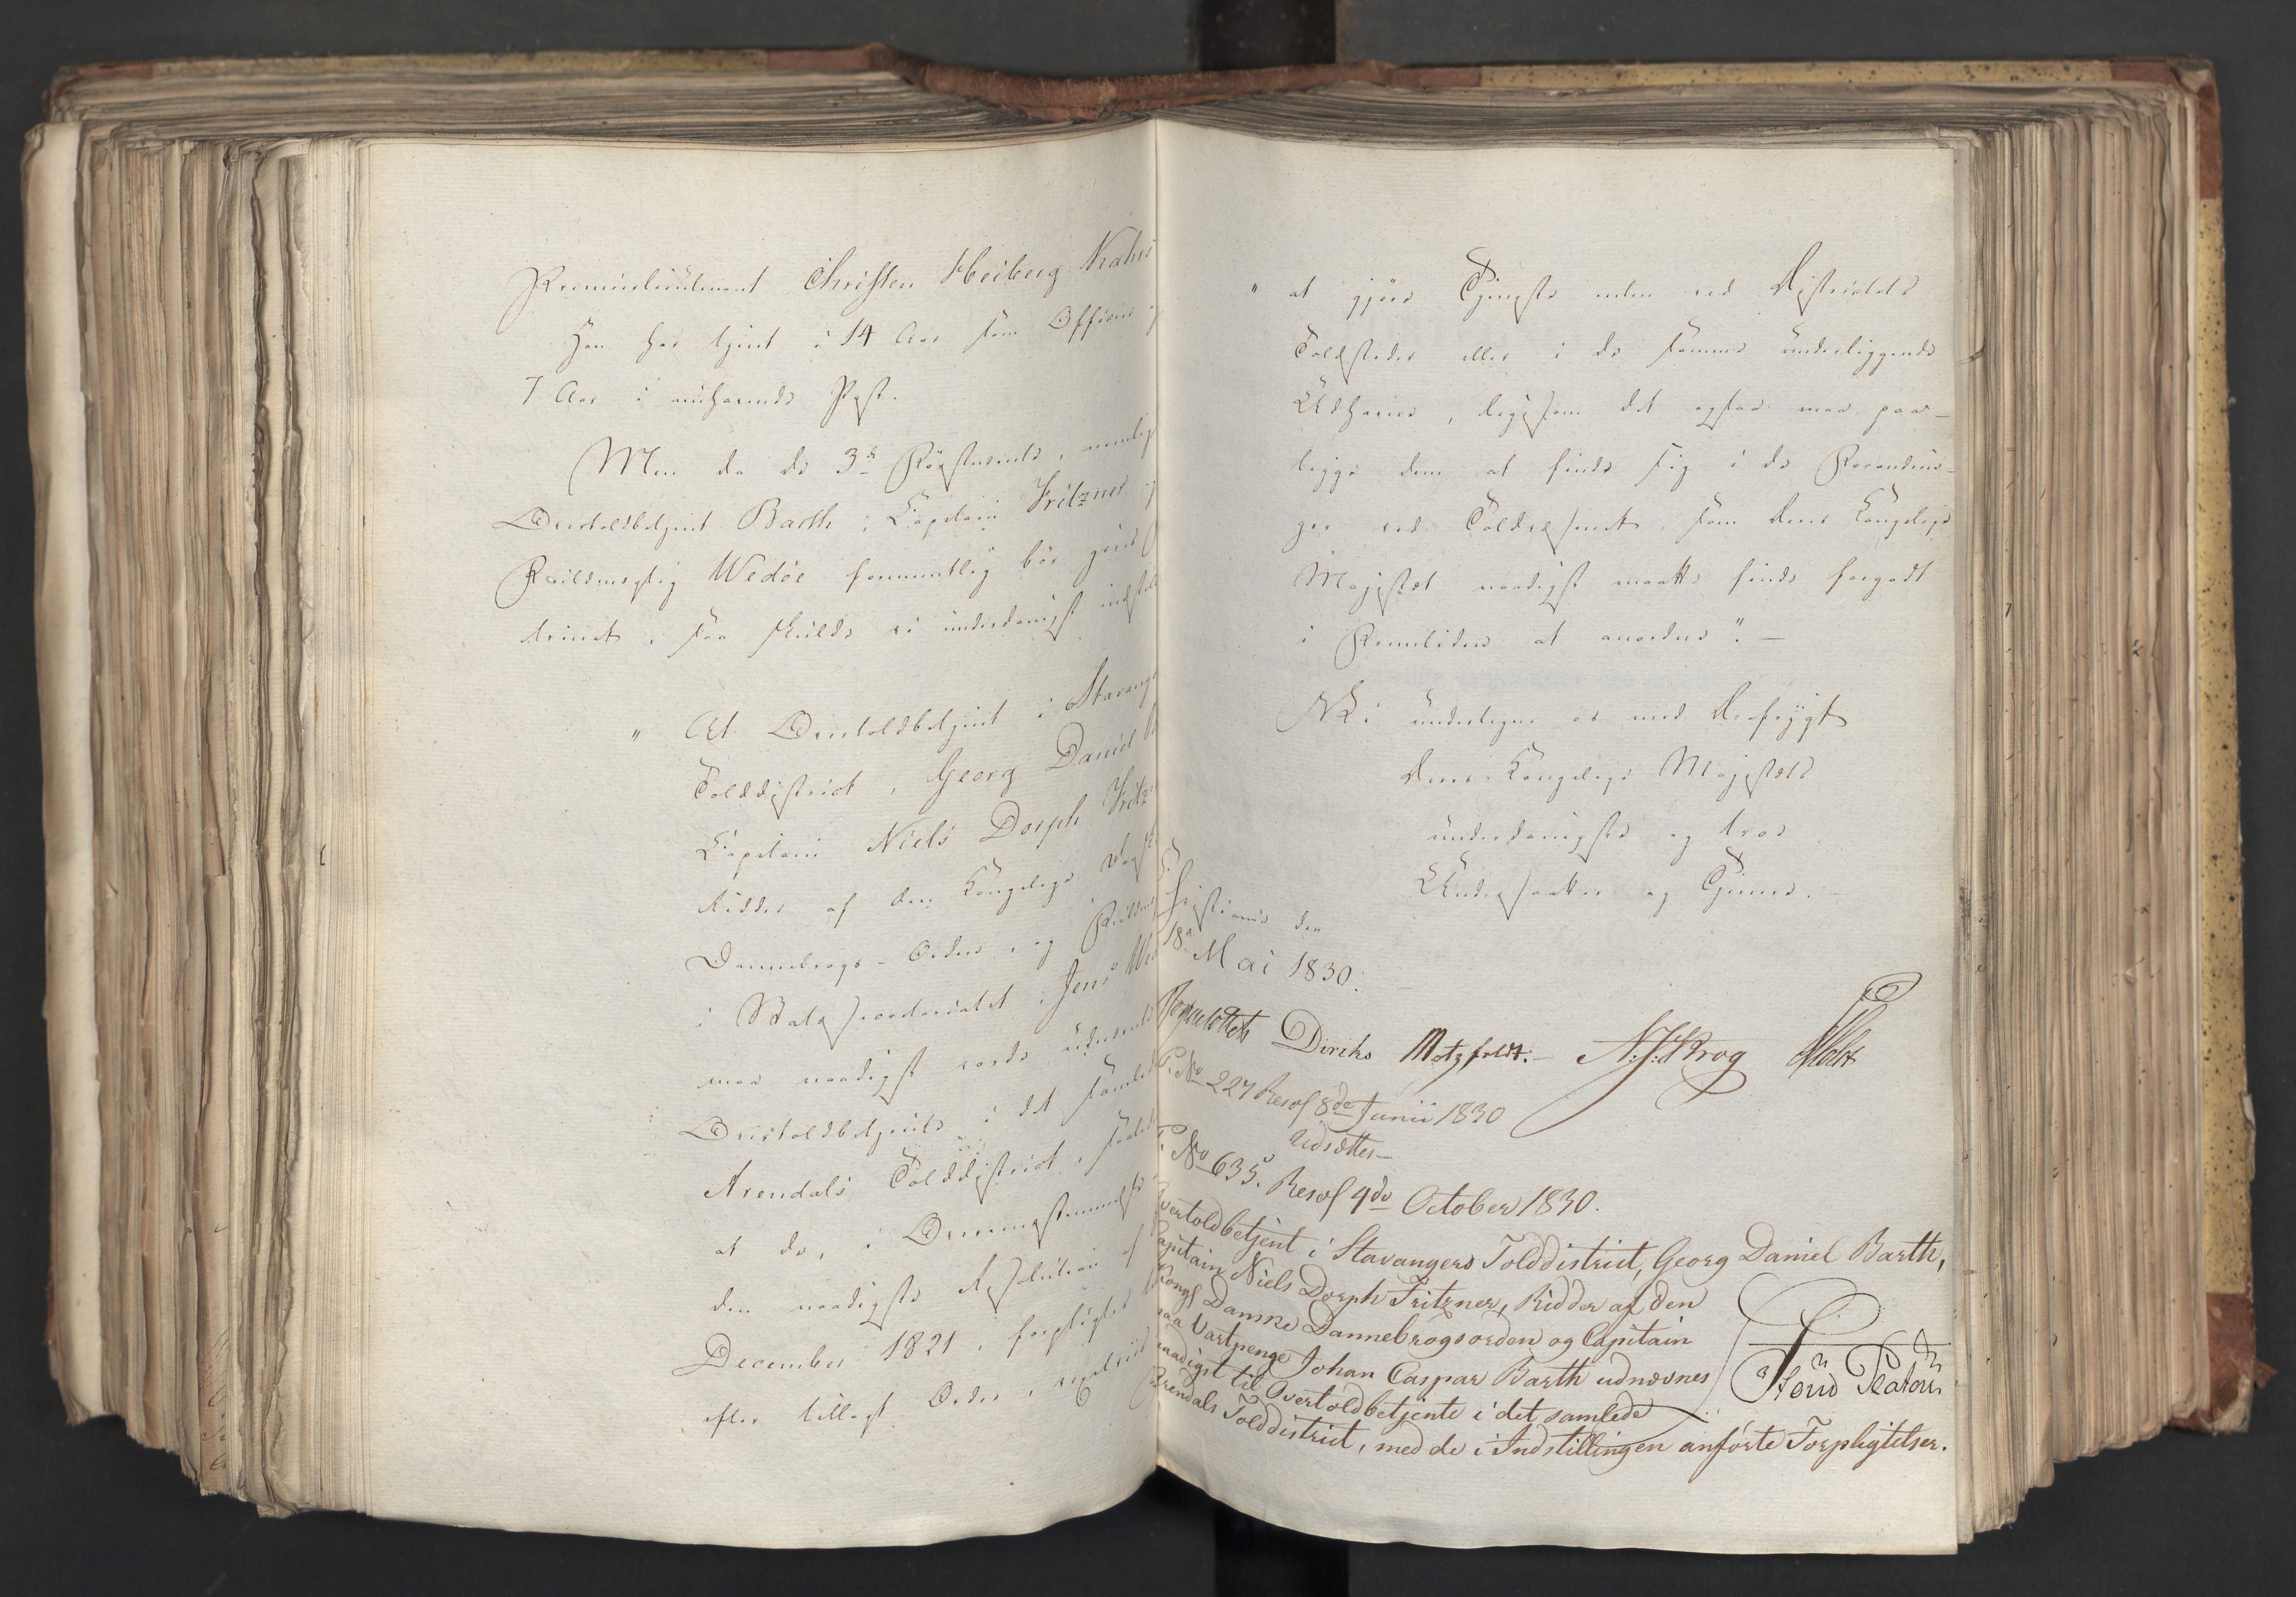 Premierlieutenant Christen Heiberg
Han har tjent i 14 Aar som Officier
7 Aar i nuhavende Post.
Men da de 3de Førstnævnte, nemlig
Overtoldbetjent Barth, Capitain Fritzner
Fuldmægtig Wedøe formentlig bør
, saa skulde vi underdanigst
" At Overtoldbetjent i
Tolddistrict, Georg Daniel
Capitain Niels Dorph
Ridder af den Kongelige
Dannebrogs-Orden, og
i Jens
maa naadigst vorde
Overtoldbetjente i det
Arendals Tolddistrict,
at de, i
den naadigste Resolution af
December 1821, forpligtes
efter tillagt Ordre,
" at gjøre Tjeneste uden ved Districtets
Toldsteder eller i de samme underliggende
Udhavne, ligesom det ogsaa maa paa-
ligge dem at finde sig i de Forandrin-
ger ved Toldvæsenet, som Deres Kongelige
Majestæt naadigst maatte finde forgodt
i Fremtiden at anordne". —
Vi undertegne os med Dybeste
Deres Kongelige Majestæts
underdanigste og troe
Undersaatter og Tjenere.
Christiania den
18de Mai 1830.
Diriks Motzfeldt. — N:J:Krog Holst
P. No 227 Resol 8de Junii 1830
Udsættes —
P. No 635. Resol 4de October 1830.
Overtoldbetjent i Stavangers Tolddistrict, Georg Daniel Barth,
Capitain Niels Dorph Fritzner, Ridder af den
Kongl Danske Dannebrogsorden og Capitain
paa Vartpenge Johan Caspar Barth udnævnes
naadigst til Overtoldbetjente i det samlede
Arendals Tolddistrict, med de i Indstillingen anførte Forpligtelser.